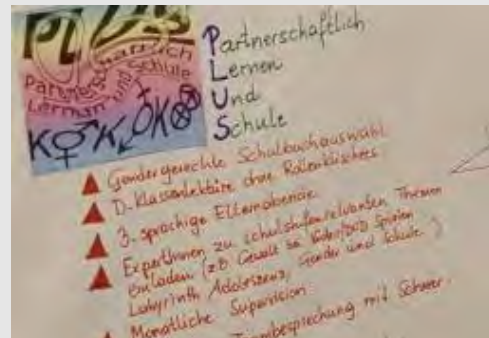 PLUS
Partnerschaftlich
Lernen und Schule
KöKöKö
Partnerschaftlich
Lernen
Und
Schule
Gendergerechte Schulbuchauswahl
D-Klassenlektüre ohne Rollenklischees
3-sprachige Elternabende
ExpertInnen zu schulstufenrelevanten Themen
einladen (z.B. Gewalt bei Video/DVD Spielen
Labyrinth Adoleszenz, Gender und Schule..)
Monatliche Supervision
Teambesprechung mit